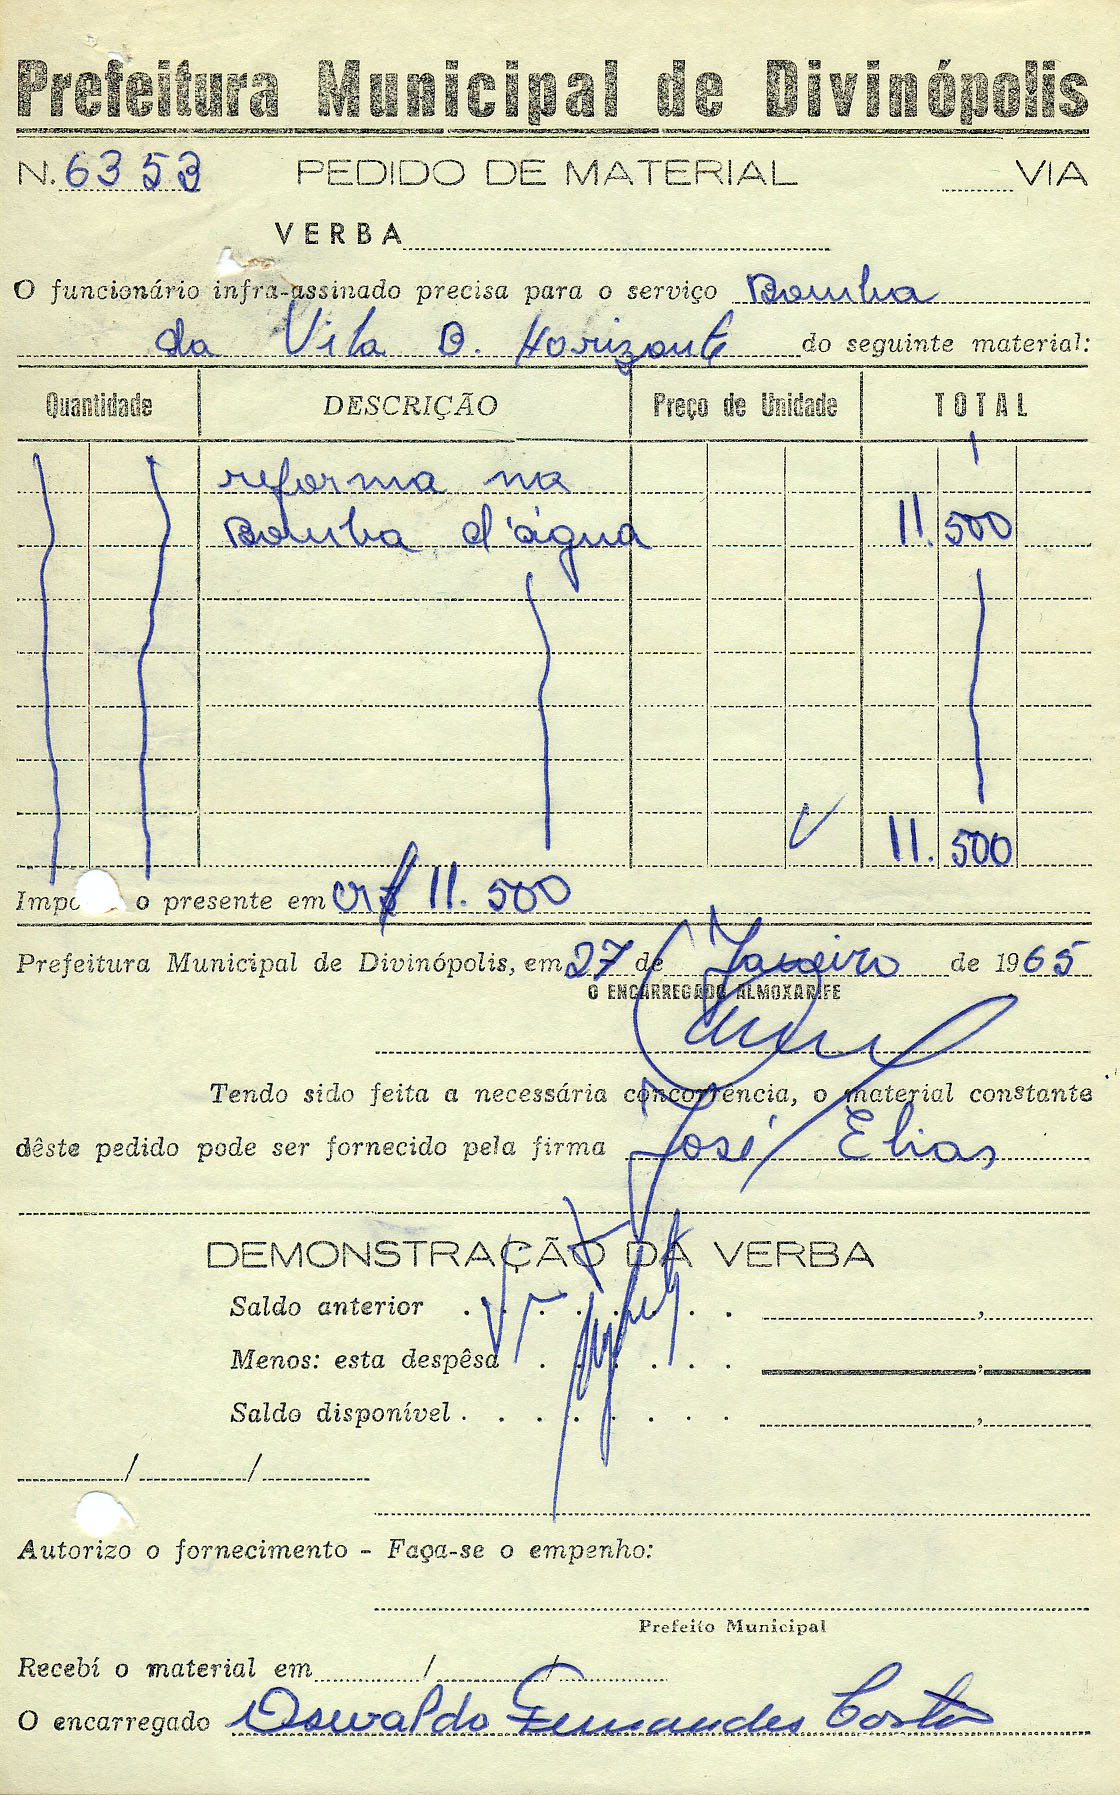 Prefeitura Municipal de Divinópolis
N. 6353 PEDIDO DE MATERIAL ........ VIA
VERBA
O funcionário infra-assinado precisa para o serviço Bomba
da Vila B. Horizonte do seguinte material:
Quantidade DESCRIÇÃO Preço de Unidade TOTAL
reforma na
Bomba d'água 11.500
11.500
o presente em Cr$ 11.500
Prefeitura Municipal de Divinópolis, em 27 de Janeiro de 1965
O ENCARREGADO ALMOXARIFE
Tendo sido feita a necessária concorrência, o material constante
dêste pedido pode ser fornecido pela firma José Elias
DEMONSTRAÇÃO DA VERBA
Saldo anterior . . . . . . . . ,
Menos: esta despêsa . . . . . . ,
Saldo disponível . . . . . . . . ,
/ /
Autorizo o fornecimento - Faça-se o empenho:
Prefeito Municipal
Recebí o material em / /
O encarregado Oswaldo Fernandes Costa